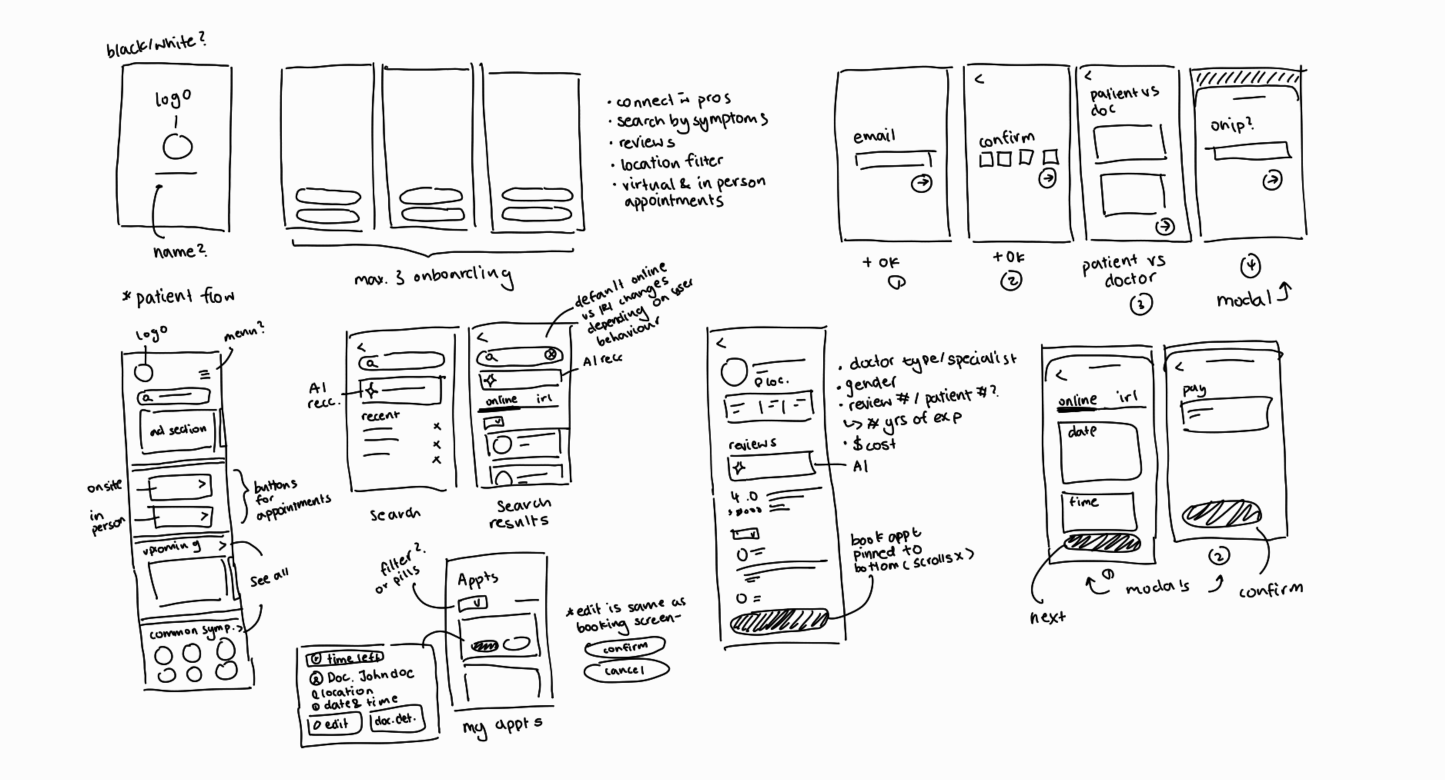 black/white?
logo
name?
max. 3 onboarding
• connect w pros
• search by symptoms
• reviews
• location filter
• virtual & in person
appointments
email
+ OK
1
<
confirm
+ OK
2
<
patient vs
doc
patient vs
doctor
3
onip?
4
modal
* patient flow
logo
menu?
ad section
onsite
in
person
buttons
for
appointments
upcoming >
See all
common symp. >
<
AI
recc.
recent
x
x
x
search
default online
vs irl changes
depending on user
behaviour
<
AI recc
online irl
Search
results
filter?
or pills
Appts
my appts
time left
Doc. John doc
location
date & time
edit
doc. det.
* edit is same as
booking screen-
confirm
cancel
<
loc.
reviews
AI
4.0
• doctor type/specialist
• gender
• review # / patient #?
↳ # yrs of exp
• $ cost
book appt
pinned to
bottom (scrolls x)
<
online irl
date
time
next
1
modals
<
pay
2
confirm